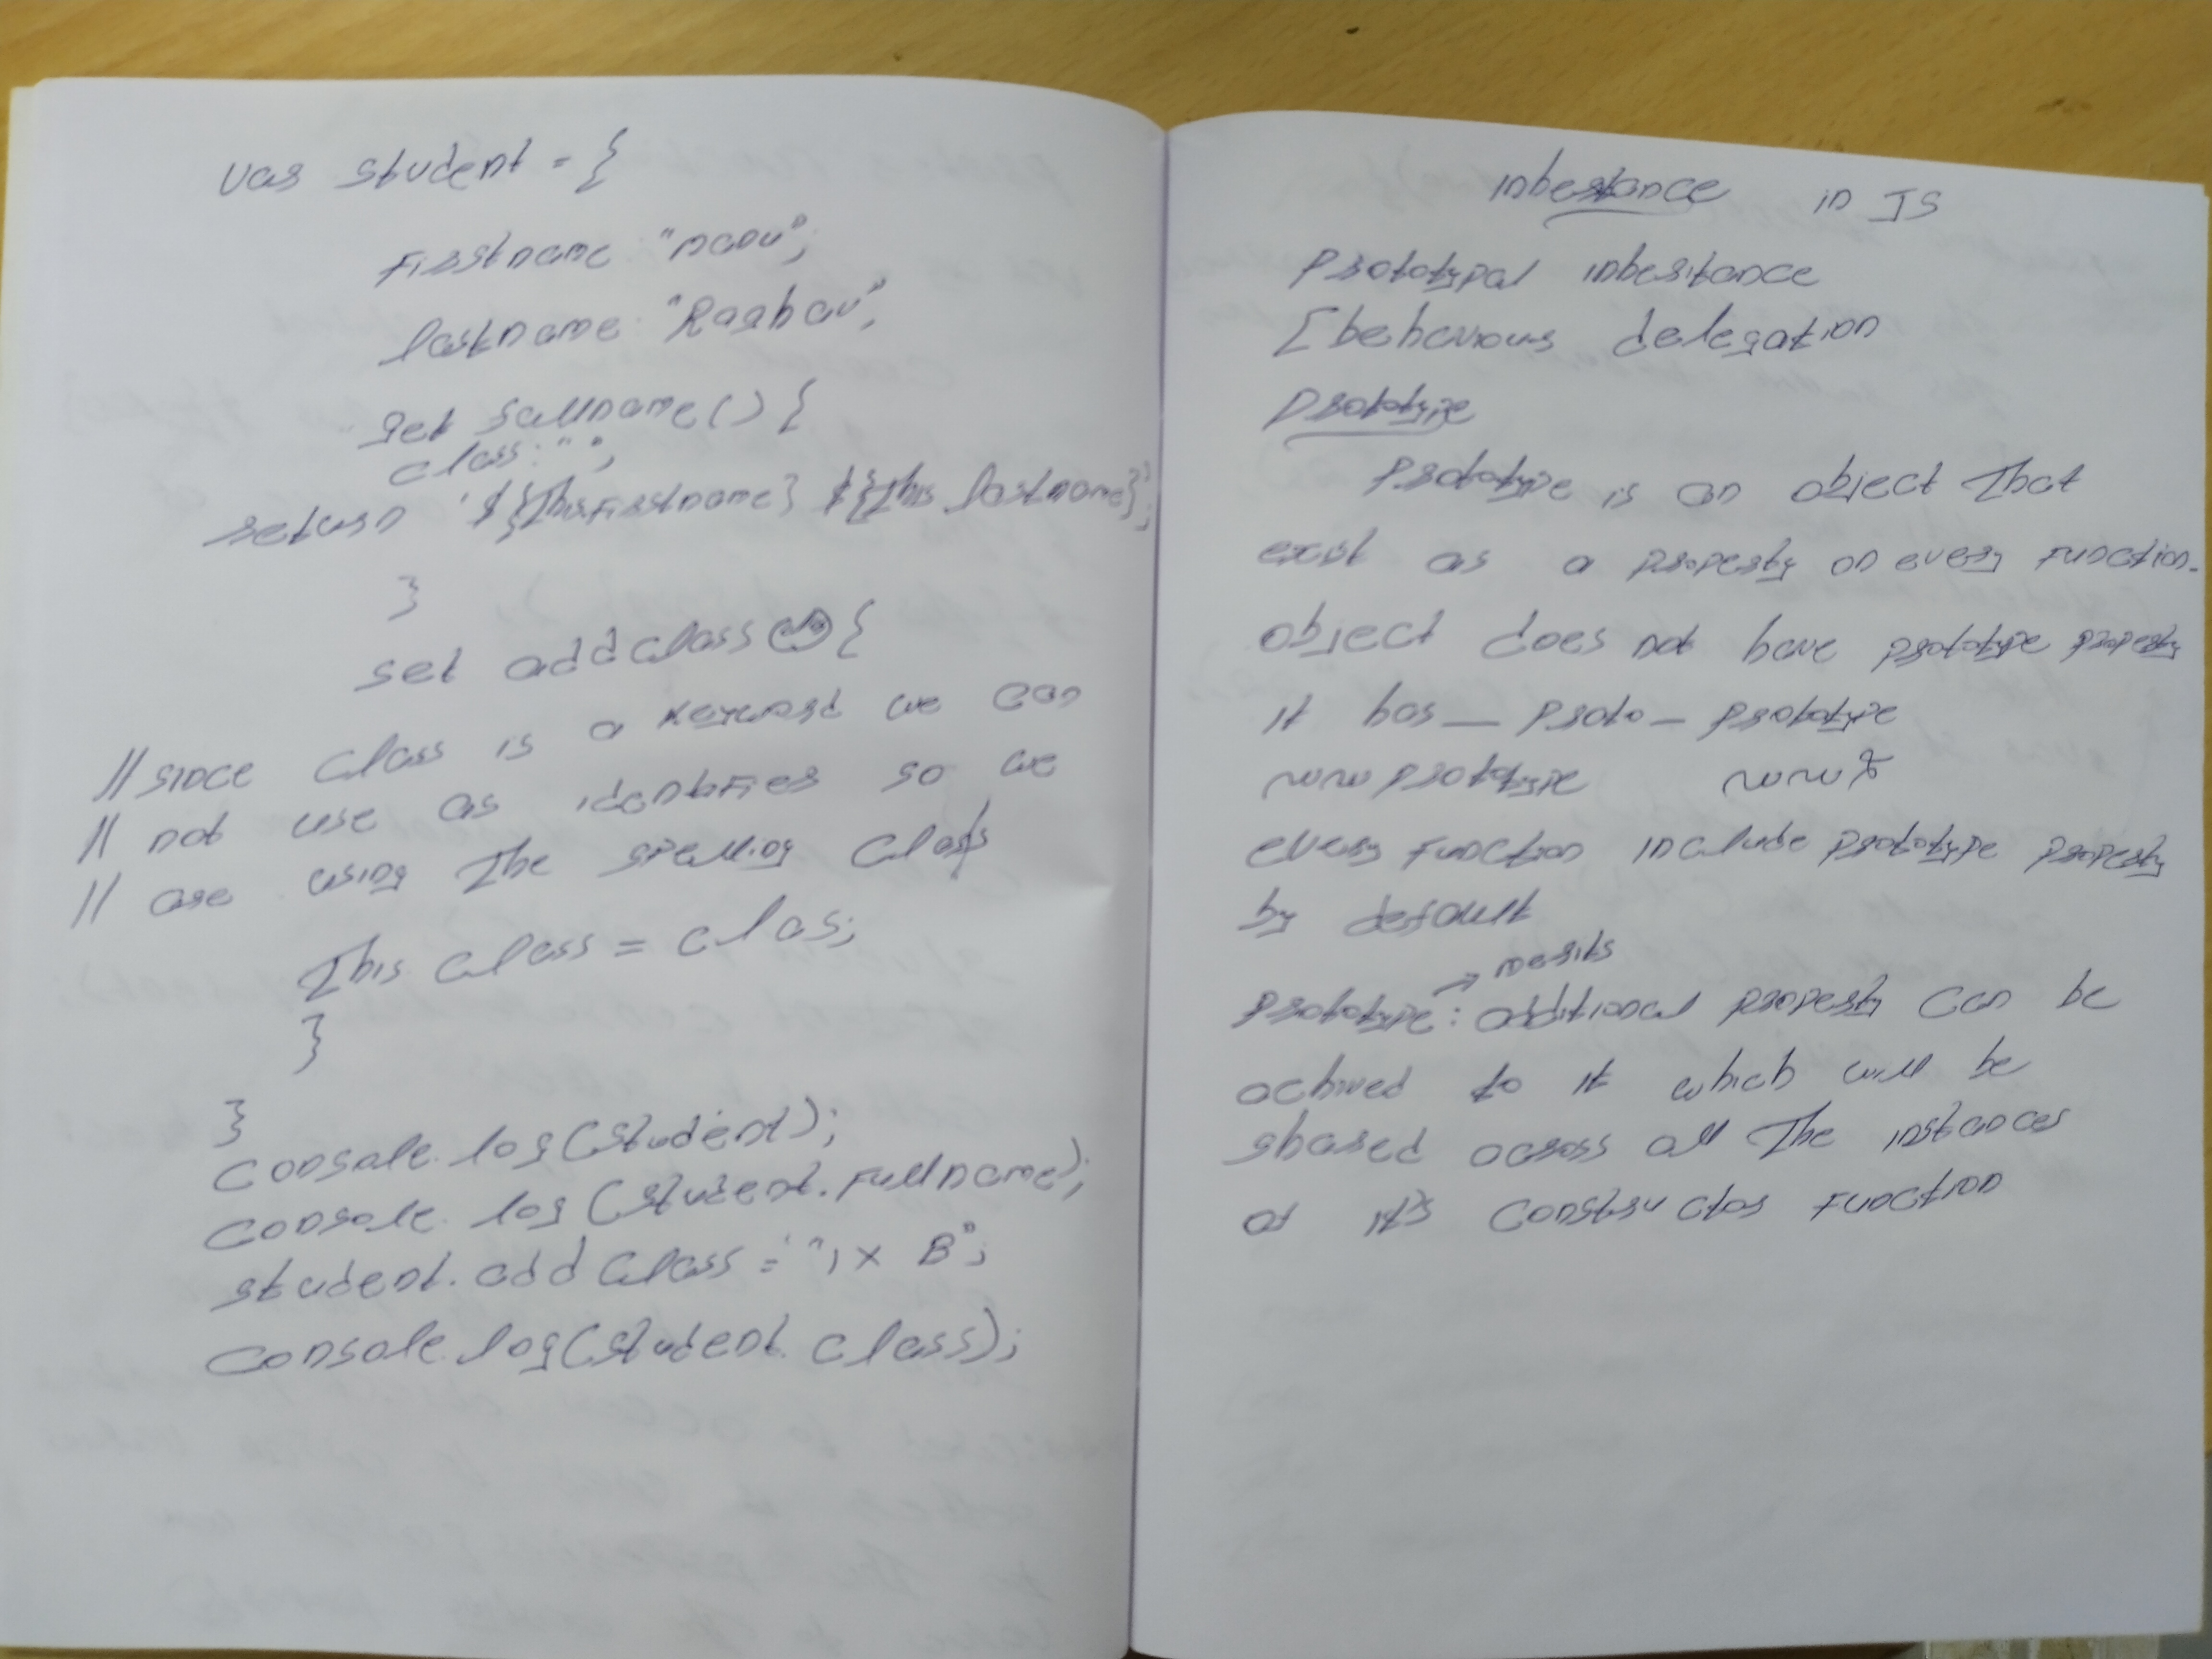 var student = {
Firstname : "manu";
lastname : "Raghav";
get fullname () {
class : " ";
return '${this.Firstname} ${this.lastname}';
}
set addclass {
// since class is a keyword we can
// not use as identifier so we
// are using the spelling clas
This. class = clas;
}
}
console.log(student);
console.log(student.Fullname);
student.add class = "IX B";
console.log(student.class);
inheritance in JS
Prototypal inheritance
[behaviour delegation
Prototype
Prototype is an object that
exist as a property on every function.
object does not have prototype property
it has _ proto _ prototype
prototype
every function include prototype property
by default
→ merits
Prototype : additional property can be
achived to it which will be
shared across all the instances
of it's constructor function